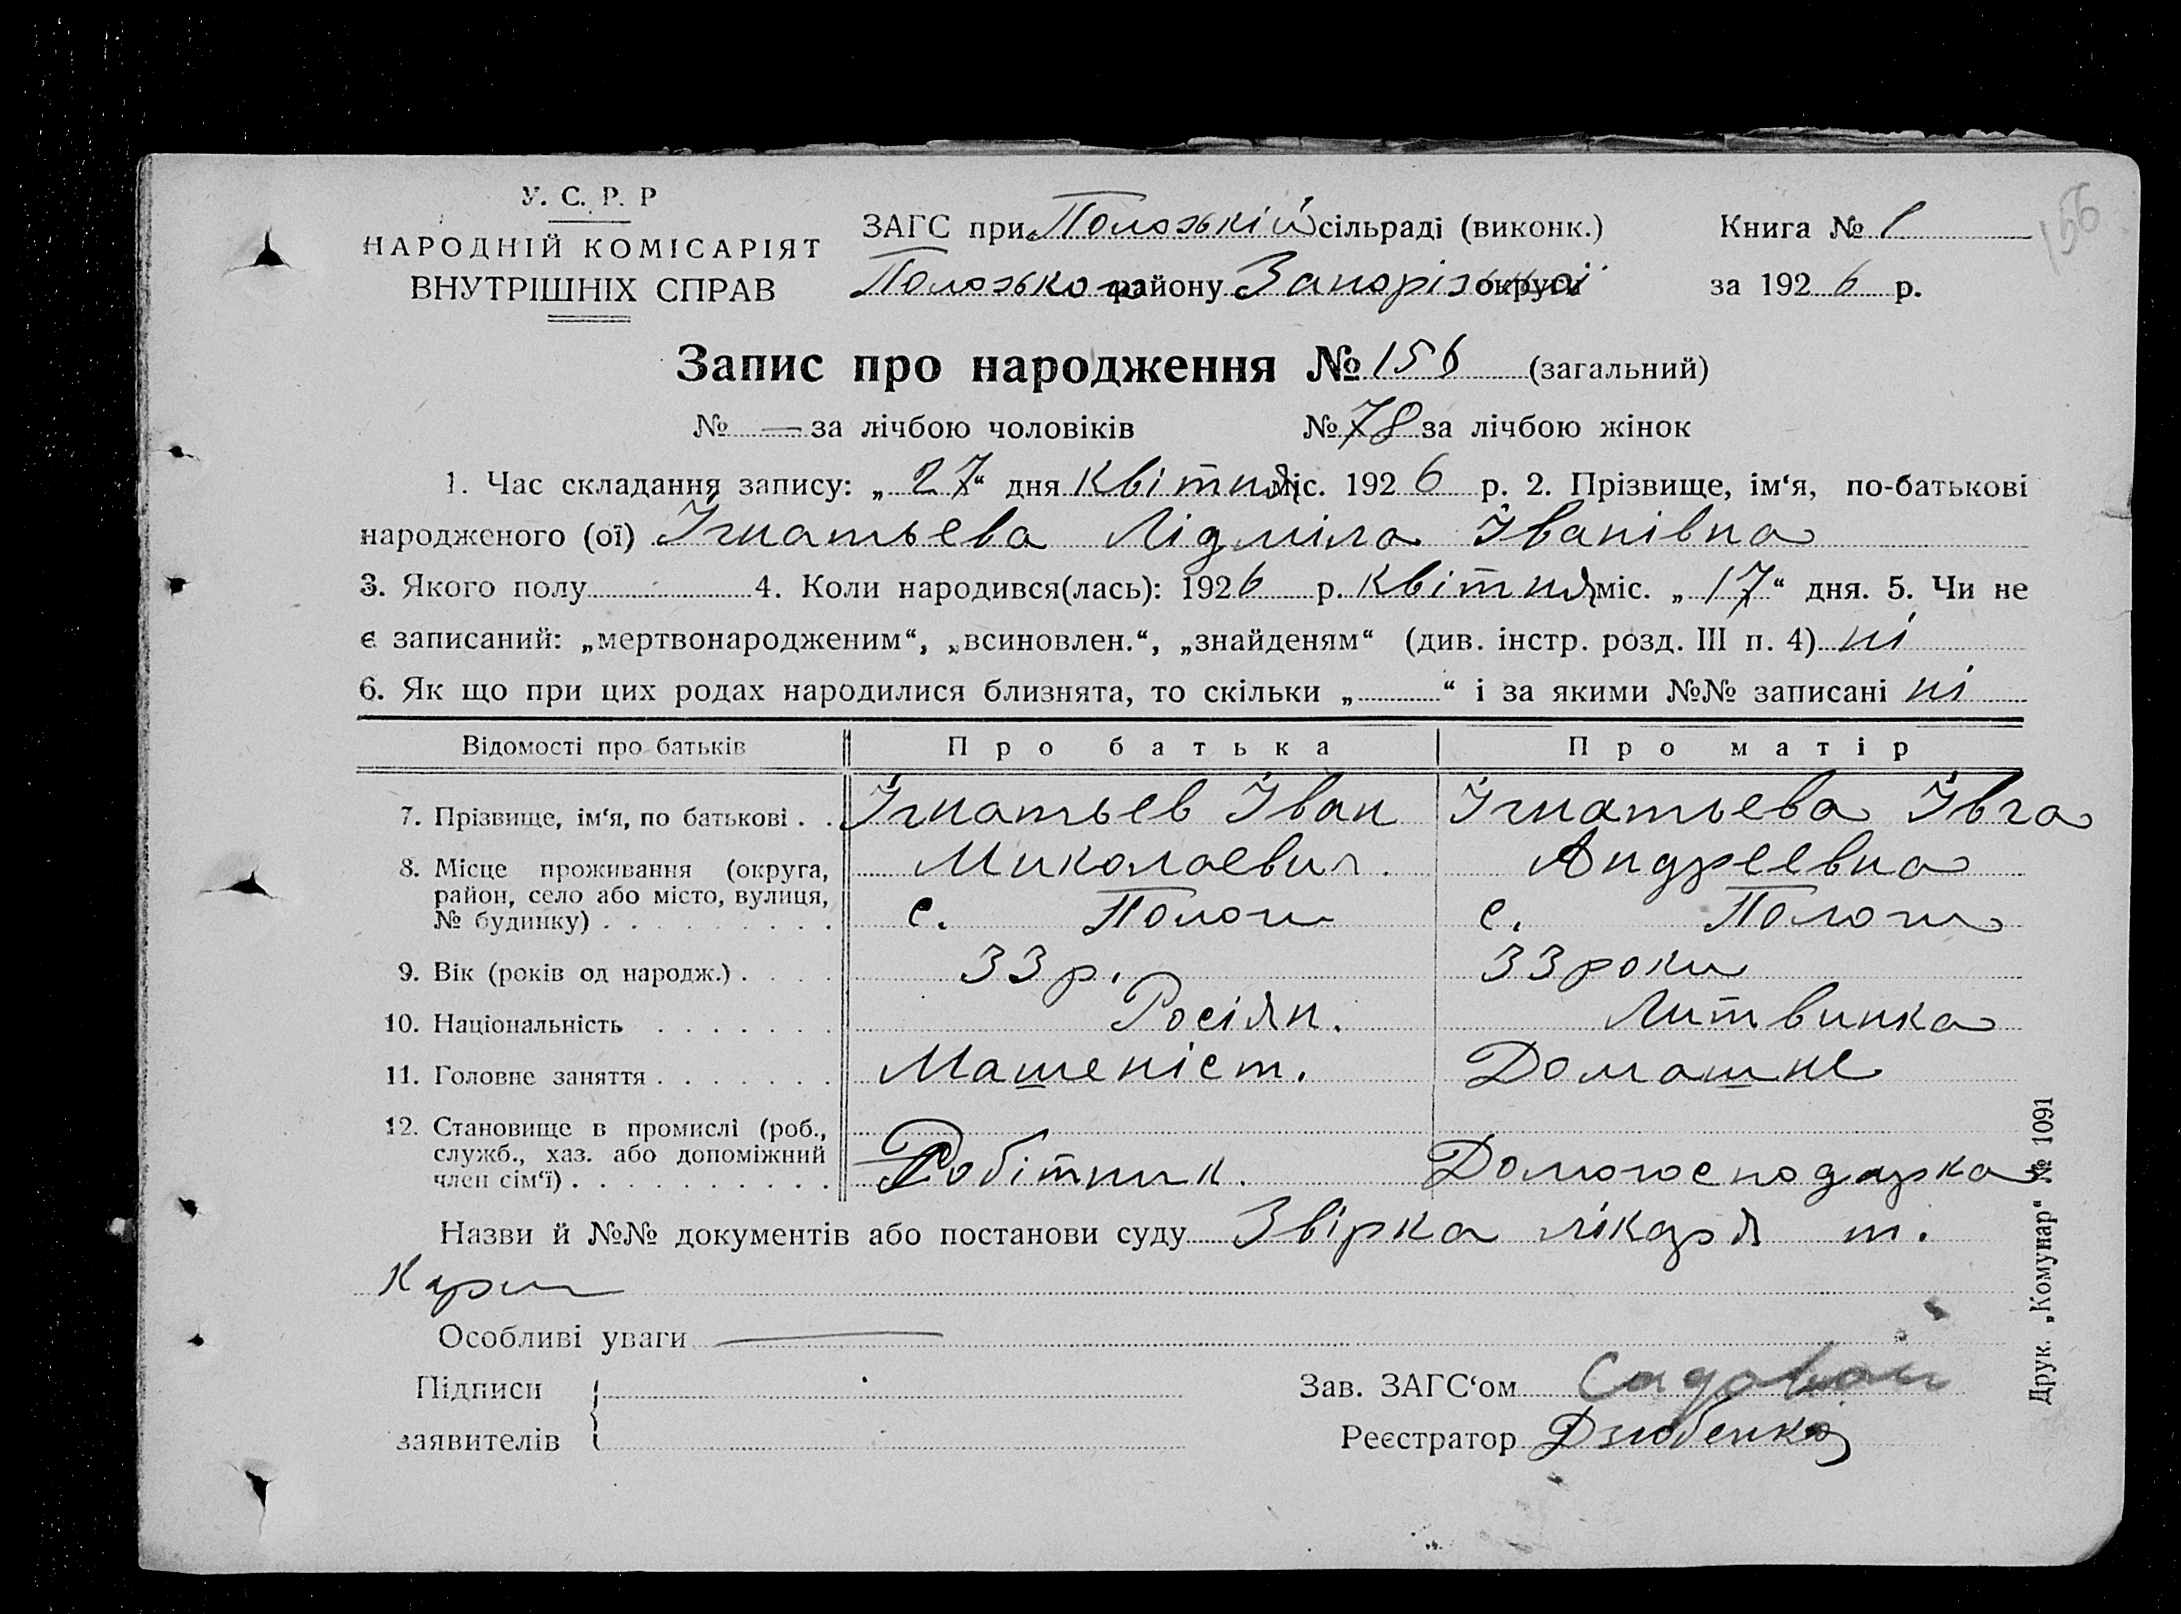 156
У. С. Р. Р
НАРОДНІЙ КОМІСАРІЯТ
ВНУТРІШНІХ СПРАВ
ЗАГС при Пологькій сільраді (виконк.) Книга № 1
Пологького району Запорізької округи за 1926 р.
Запис про народження № 156 (загальний)
№ — за лічбою чоловіків № 78 за лічбою жінок
1. Час складання запису: „27“ дня Квітня міс. 1926 р. 2. Прізвище, ім‘я, по-батькові
народженого (ої) Ігнатьева Лідміла Іванівна
3. Якого полу 4. Коли народився(лась): 1926 р. Квітня міс. „17“ дня. 5. Чи не
є записаний: „мертвонародженим“, „всиновлен.“, „знайденям“ (див. інстр. розд. III п. 4) ні
6. Як що при цих родах народилися близнята, то скільки „ “ і за якими №№ записані ні
Відомості про батьків Про батька Про матір
7. Прізвище, ім‘я, по батькові . . Ігнатьев Іван Ігнатьева Івга
Миколаевич. Андреевна
8. Місце проживання (округа,
район, село або місто, вулиця,
№ будинку) . . . . . . . . . с. Пологи с. Пологи
9. Вік (років од народж.) . . . . 33 р. 33 роки
10. Національність . . . . . . . Росіян. Литвинка
11. Головне заняття . . . . . . . Машеніст. Домашне
12. Становище в промислі (роб.,
служб., хаз. або допоміжний
член сім‘ї) . . . . . . . . . . Робітник. Домогосподарка
Назви й №№ документів або постанови суду Звірка лікаря т.
Особливі уваги —
Підписи
заявителів
Зав. ЗАГС‘ом Садовой
Реєстратор Дзюбенко
Друк. „Комунар“ № 1091